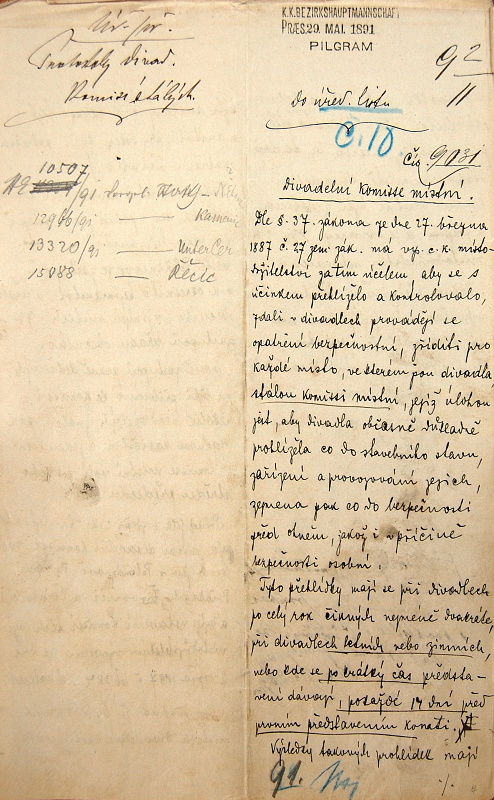 Protokoly divad.
Komisí stálých.
10507
/91
12966/91
13320/91
15088
Kamenic
Unter Cer
Řečic
K.K. BEZIRKSHAUPTMANNSCHAFT
PRÆS. 29. MAI. 1891
PILGRAM
92
11
do úřed. listu
Č. 10
Čís. 9031
Divadelní komisse místní.
Dle §. 37. zákona ze dne 27. března
1887 č. 27 zem. zák. má vys. c. k. místo-
držitelství za tím účelem, aby se s
účinkem přehlíželo a kontrolovalo,
zdali v divadlech provádějí se
opatření bezpečnostní, zříditi pro
každé místo, ve kterém jsou divadla
stálou komissi místní, jejíž úlohou
jest, aby divadla občasně důkladně
prohlížela co do stavebního stavu,
zařízení a provozování jejich,
zejmena pak co do bezpečnosti
před ohněm, jakož i v příčině
bezpečnosti osobní.
Tyto přehlídky mají se při divadlech
po celý rok činných nejméně dvakráte,
při divadlech letních nebo zimních,
nebo kde se po krátký čas předsta-
vení dávají, pokaždé 14 dní před
prvním představením konati.
Výsledky takových prohlídek mají
./.
91.